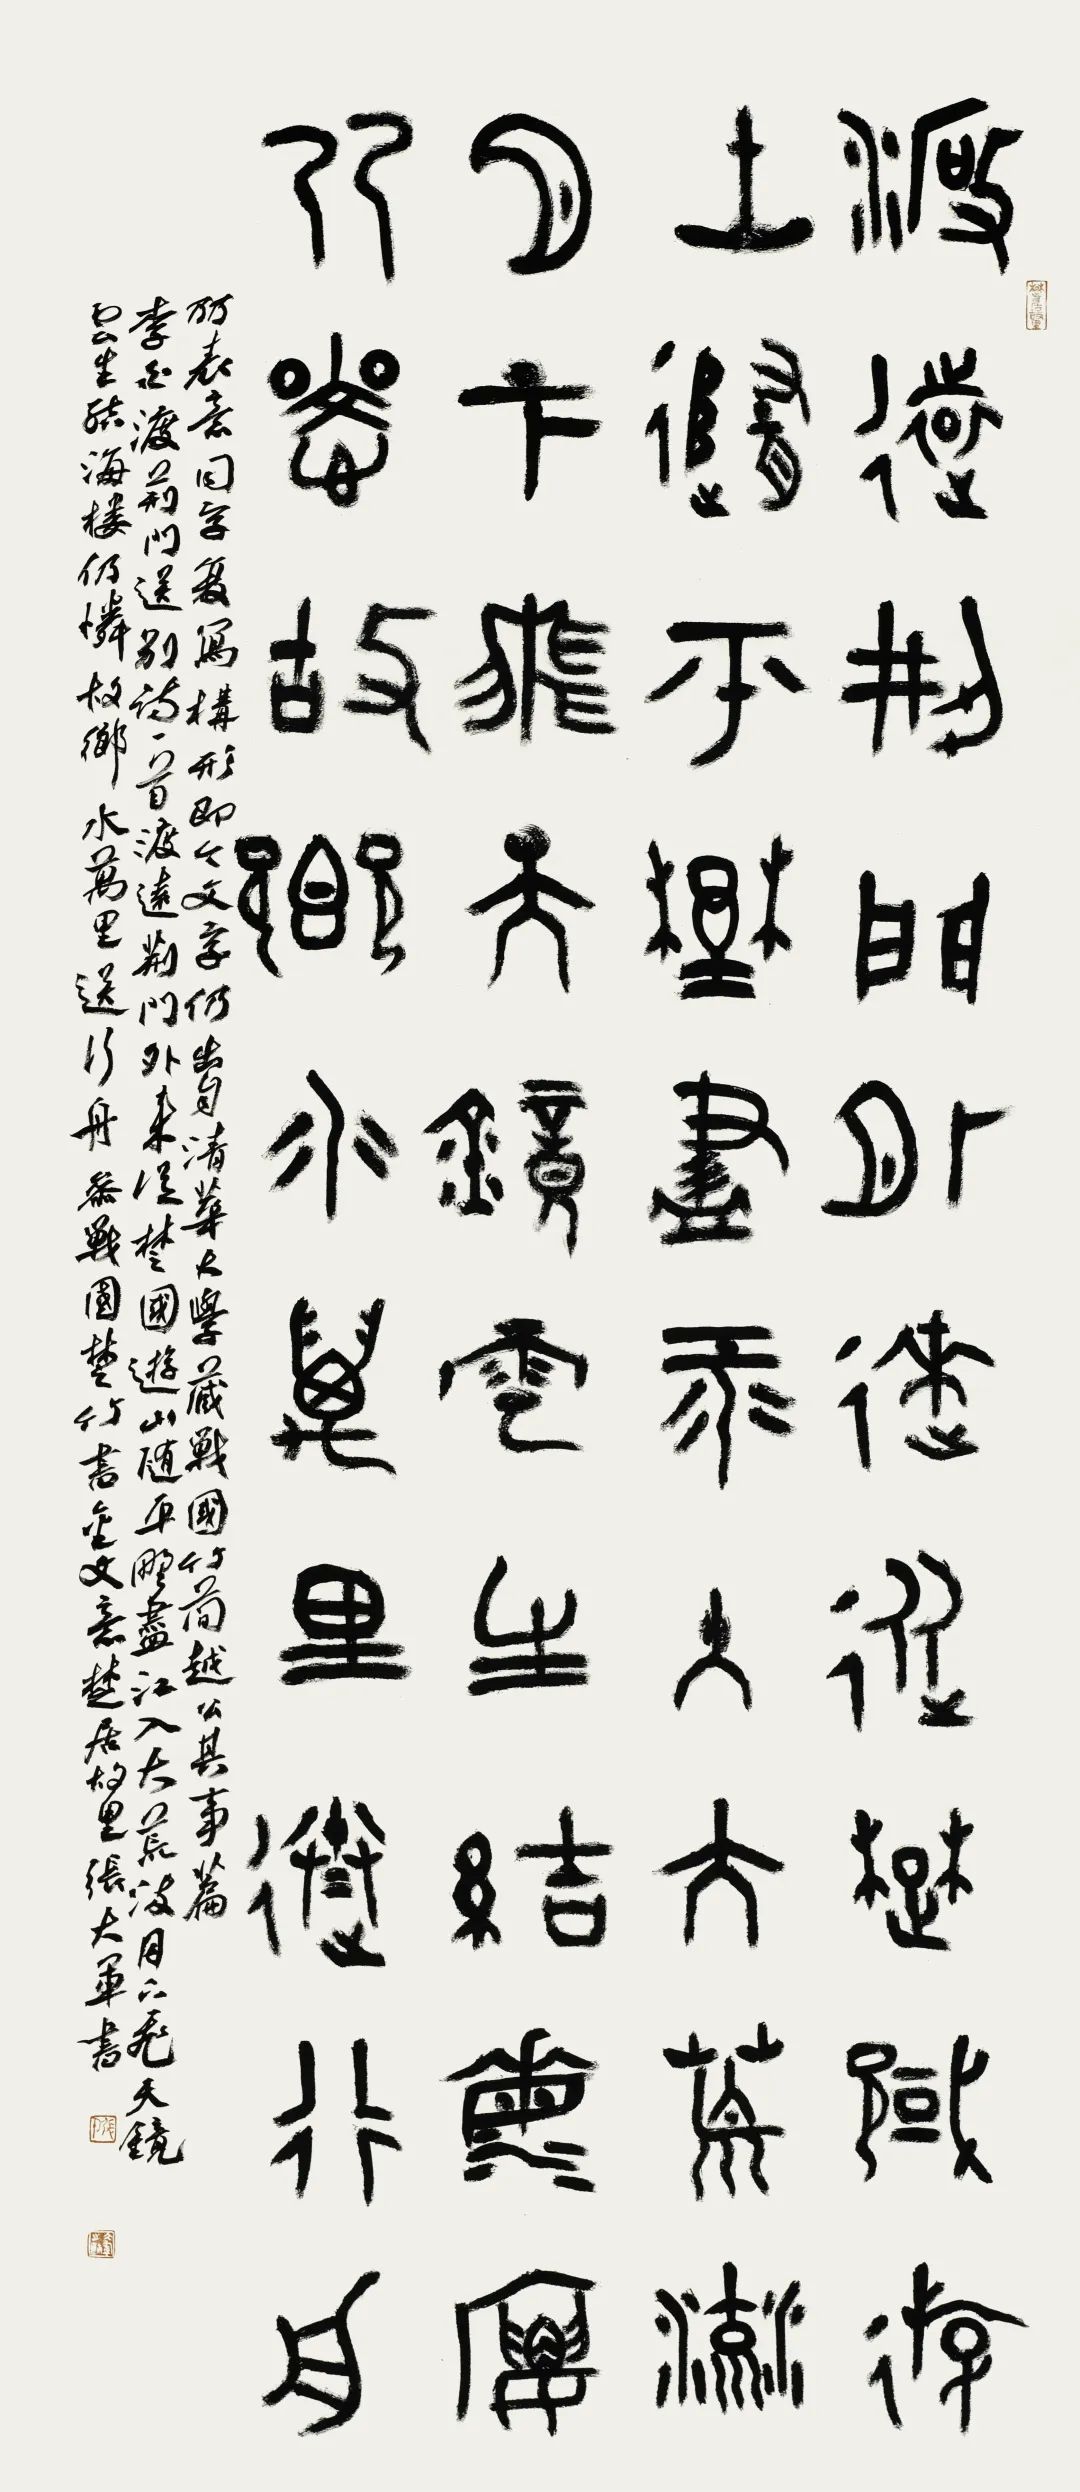 渡遠荊門外來從楚國遊
山隨平野盡江入大荒流
月下飛天鏡雲生結海樓
仍憐故鄉水萬里送行舟
表意同字異寫構形即今文字仍出自清華大學藏戰國竹简越公其事篇
李白渡荊門送別詩一首渡遠荊門外來從楚國遊山随平野盡江入大荒流月下飛天鏡
雲生結海楼仍憐故鄉水萬里送行舟參戰國楚竹書金文意楚居故里張大軍書